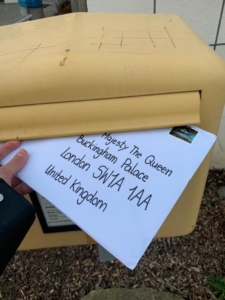 Majesty The Queen
Buckingham Palace
London SW1A 1AA
United Kingdom